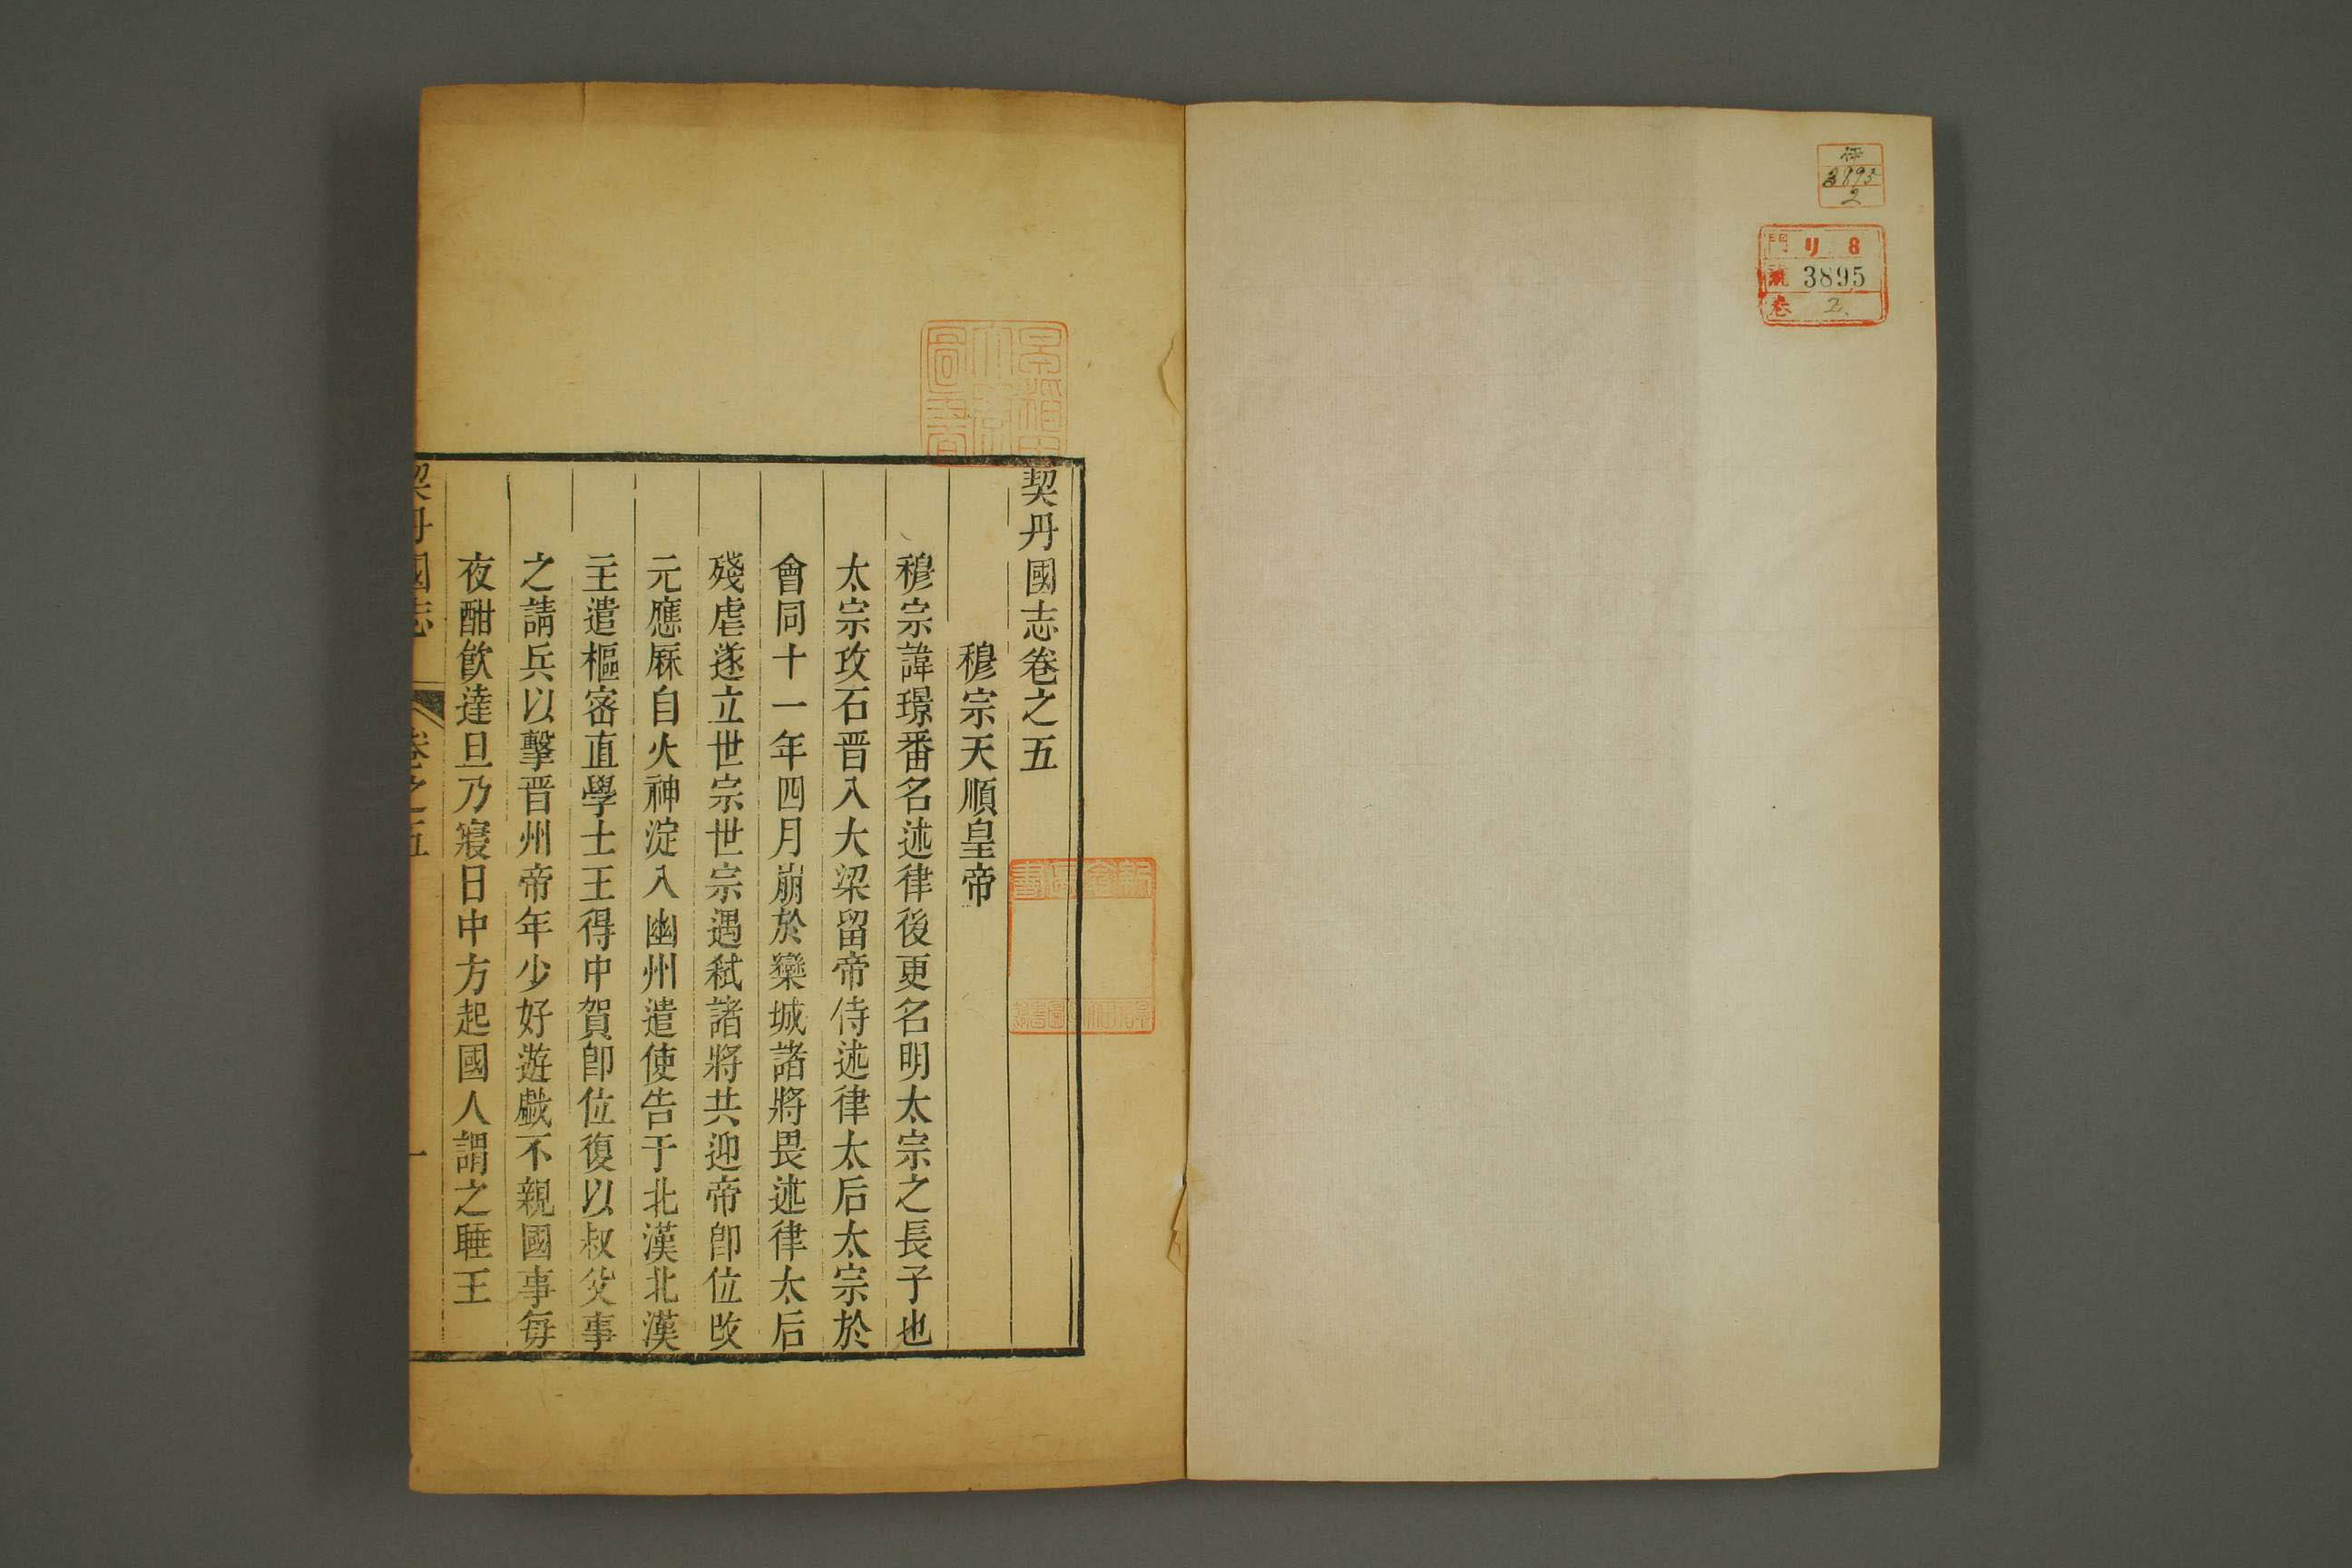 3895
2
門 リ 8
號 3895
卷 2.
契丹國志卷之五
穆宗天順皇帝
穆宗諱璟番名述律後更名明太宗之長子也
太宗攻石晋入大梁留帝侍述律太后太宗於
會同十一年四月崩於欒城諸將畏述律太后
殘虐遂立世宗世宗遇弑諸將共迎帝卽位改
元應厤自火神淀入幽州遣使告于北漢北漢
主遣樞密直學士王得中賀卽位復以叔父事
之請兵以擊晋州帝年少好遊戲不親國事每
夜酣飲達旦乃寢日中方起國人謂之睡王
契丹國志 卷之五 一